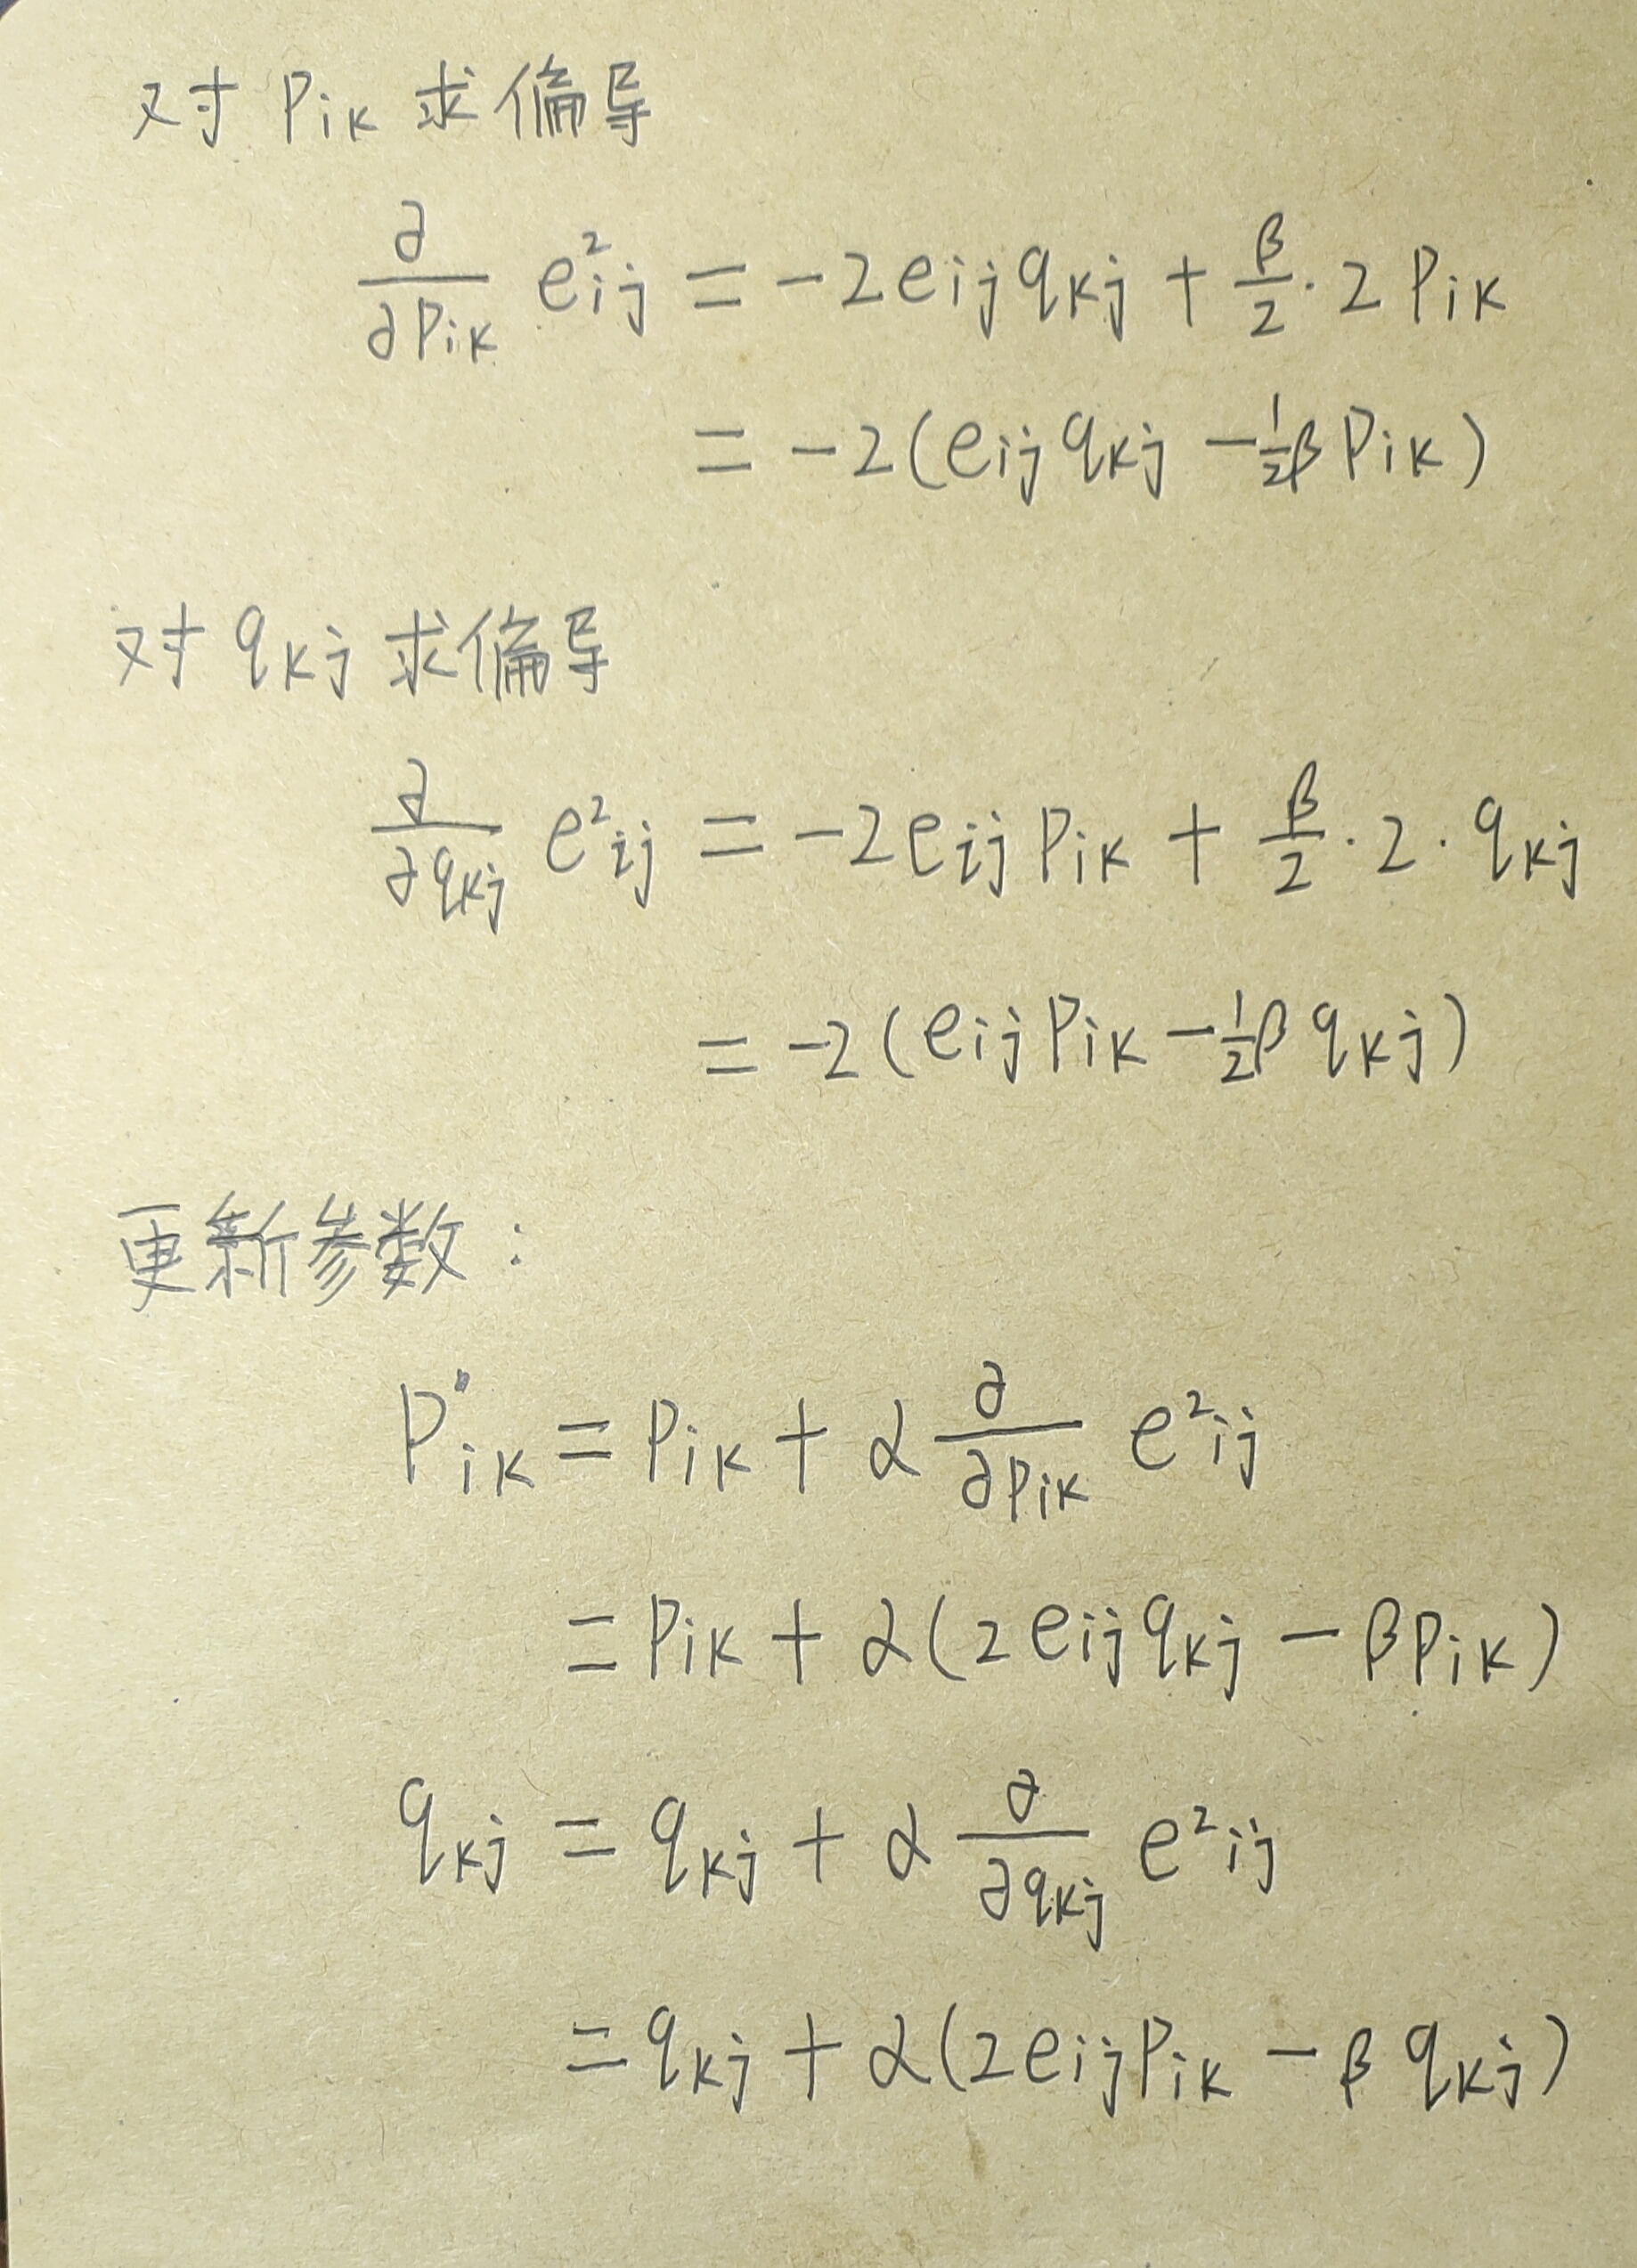 对 Pik 求偏导
∂/∂Pik e²ij = -2eijqkj + β/2 · 2Pik
= -2(eijqkj - 1/2βPik)
对 qkj 求偏导
∂/∂qkj e²ij = -2eijPik + β/2 · 2 · qkj
= -2(eijPik - 1/2βqkj)
更新参数:
Pik = Pik + α ∂/∂Pik e²ij
= Pik + α(2eijqkj - βPik)
qkj = qkj + α ∂/∂qkj e²ij
= qkj + α(2eijPik - βqkj)